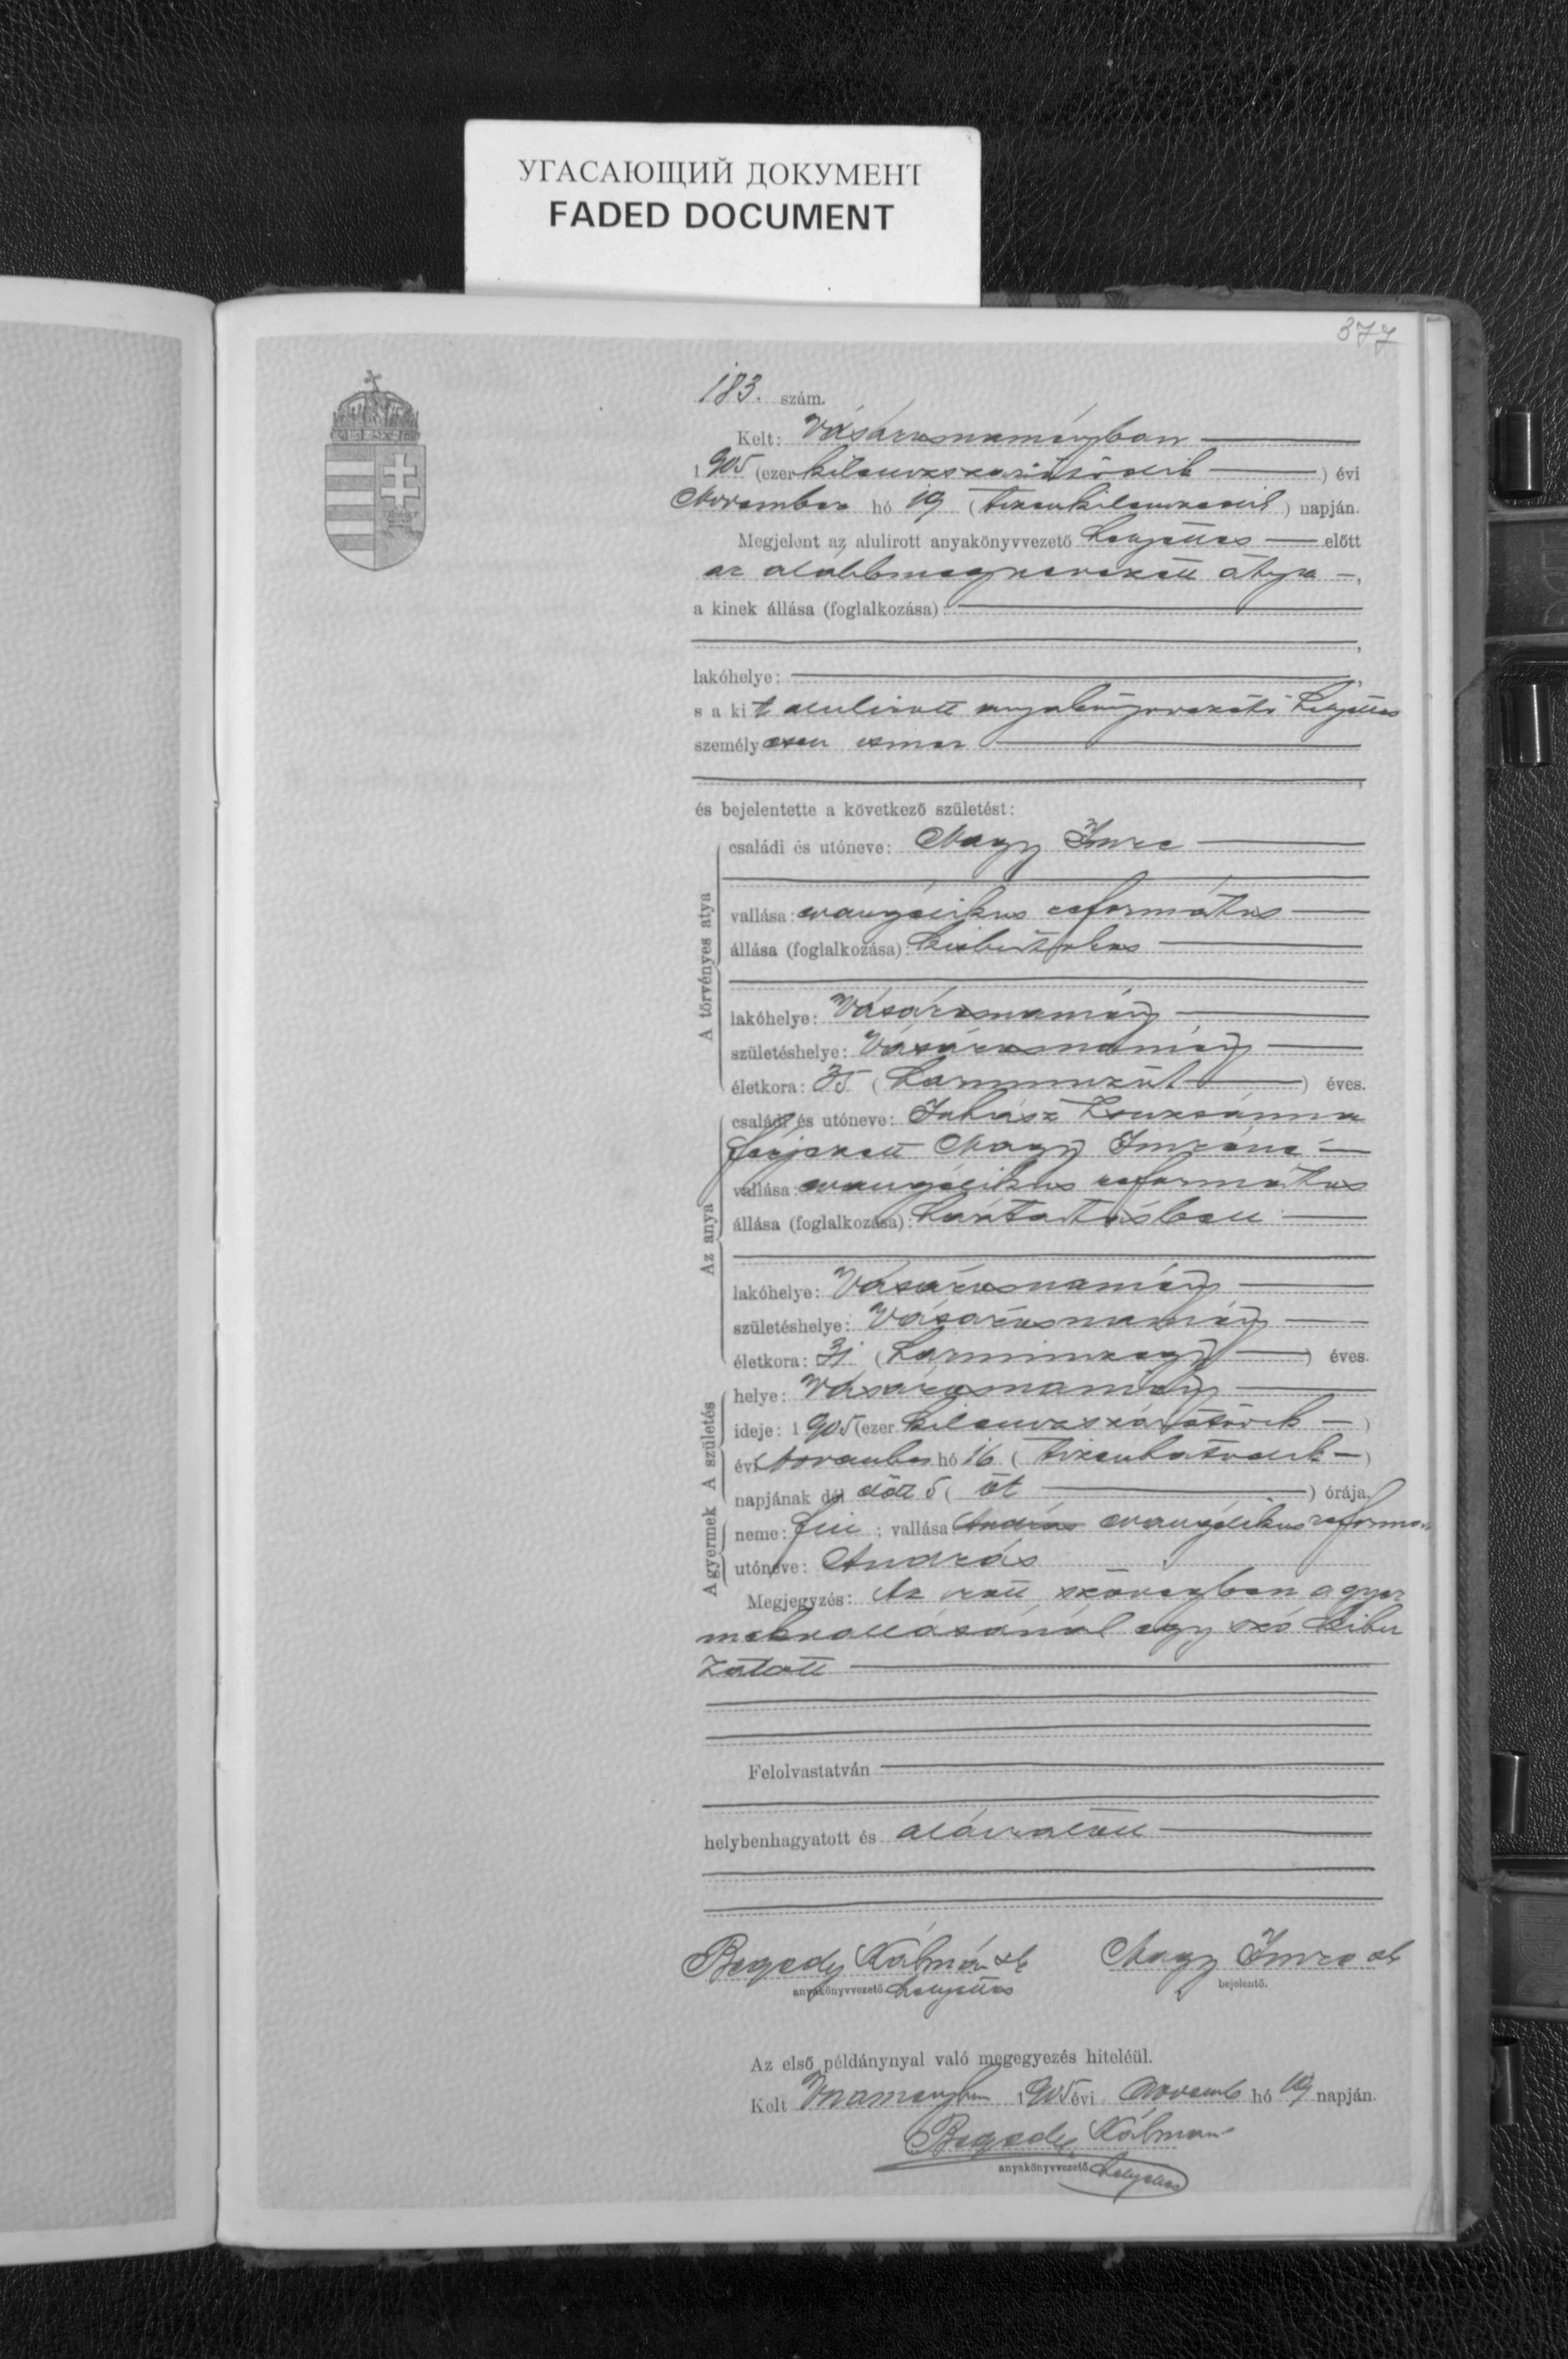 УГАСАЮЩИЙ ДОКУМЕНТ
FADED DOCUMENT
377
183. szám.
Kelt: Vásárosnaményban
1905 (ezer kilenczszázötödik) évi
November hó 19 (tizenkilenczedik) napján.
Megjelent az alulirott anyakönyvvezető helyettes előtt
az alábbmegnevezett atya,
a kinek állása (foglalkozása):
lakóhelye:
s a kit alulirott anyakönyvvezető helyettes
személyesen ismer
és bejelentette a következő születést:
A törvényes atya
családi és utóneve: Nagy Imre
vallása: evangélikus református
állása (foglalkozása): kisbirtokos
lakóhelye: Vásárosnamény
születéshelye: Vásárosnamény
életkora: 35 (harminczöt) éves.
Az anya
családi és utóneve: Juhász Zsuzsánna
férjezett Nagy Imréné
vallása: evangélikus református
állása (foglalkozása): háztartásbeli
lakóhelye: Vásárosnamény
születéshelye: Vásárosnamény
életkora: 31 (harminczegy) éves.
A születés
helye: Vásárosnamény
ideje: 1905 (ezer kilenczszázötödik)
évi November hó 16 (tizenhatodik)
napjának dél előtt 5 (öt) órája.
A gyermek
neme: fiú; vallása András evangélikus reformat
utóneve: András
Megjegyzés: Az irott szövegben a gyer
mek vallásánál egy szó kihu
zatott
Felolvastatván
helybenhagyatott és aláiratott
Begedy Kálmán sk Nagy Imre sk
anyakönyvvezető helyettes bejelentő.
Az első példánynyal való megegyezés hiteléül.
Kelt Vnaményban 1905 évi novemb hó 19 napján.
Begedy Kálmán
anyakönyvvezető helyettes